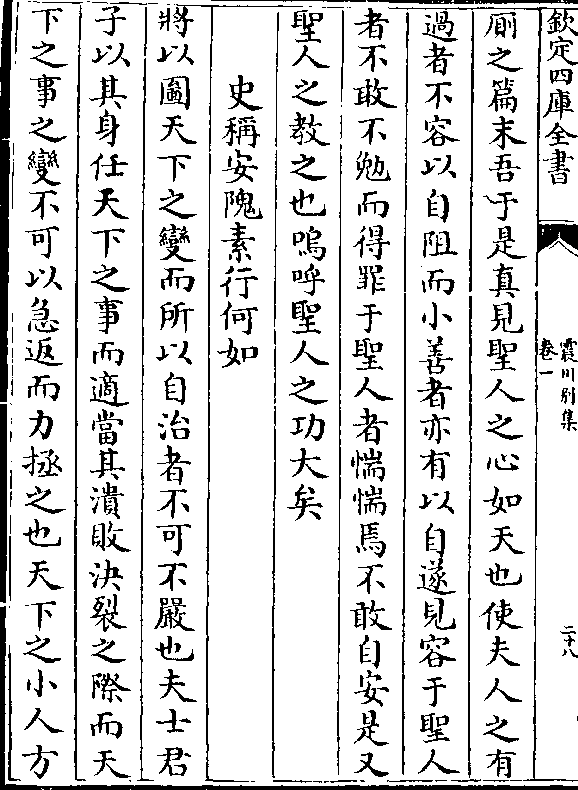 欽定四庫全書
霞川別集
卷一
二十八
廁之篇末吾于是真見聖人之心如天也使夫人之有
過者不容以自阻而小善者亦有以自遂見容于聖人
者不敢不勉而得罪于聖人者惴惴焉不敢自安是又
聖人之教之也嗚呼聖人之功大矣
史稱安隗素行何如
將以圖天下之變而所以自治者不可不嚴也夫士君
子以其身任天下之事而適當其潰敗決裂之際而天
下之事之變不可以急返而力拯之也天下之小人方